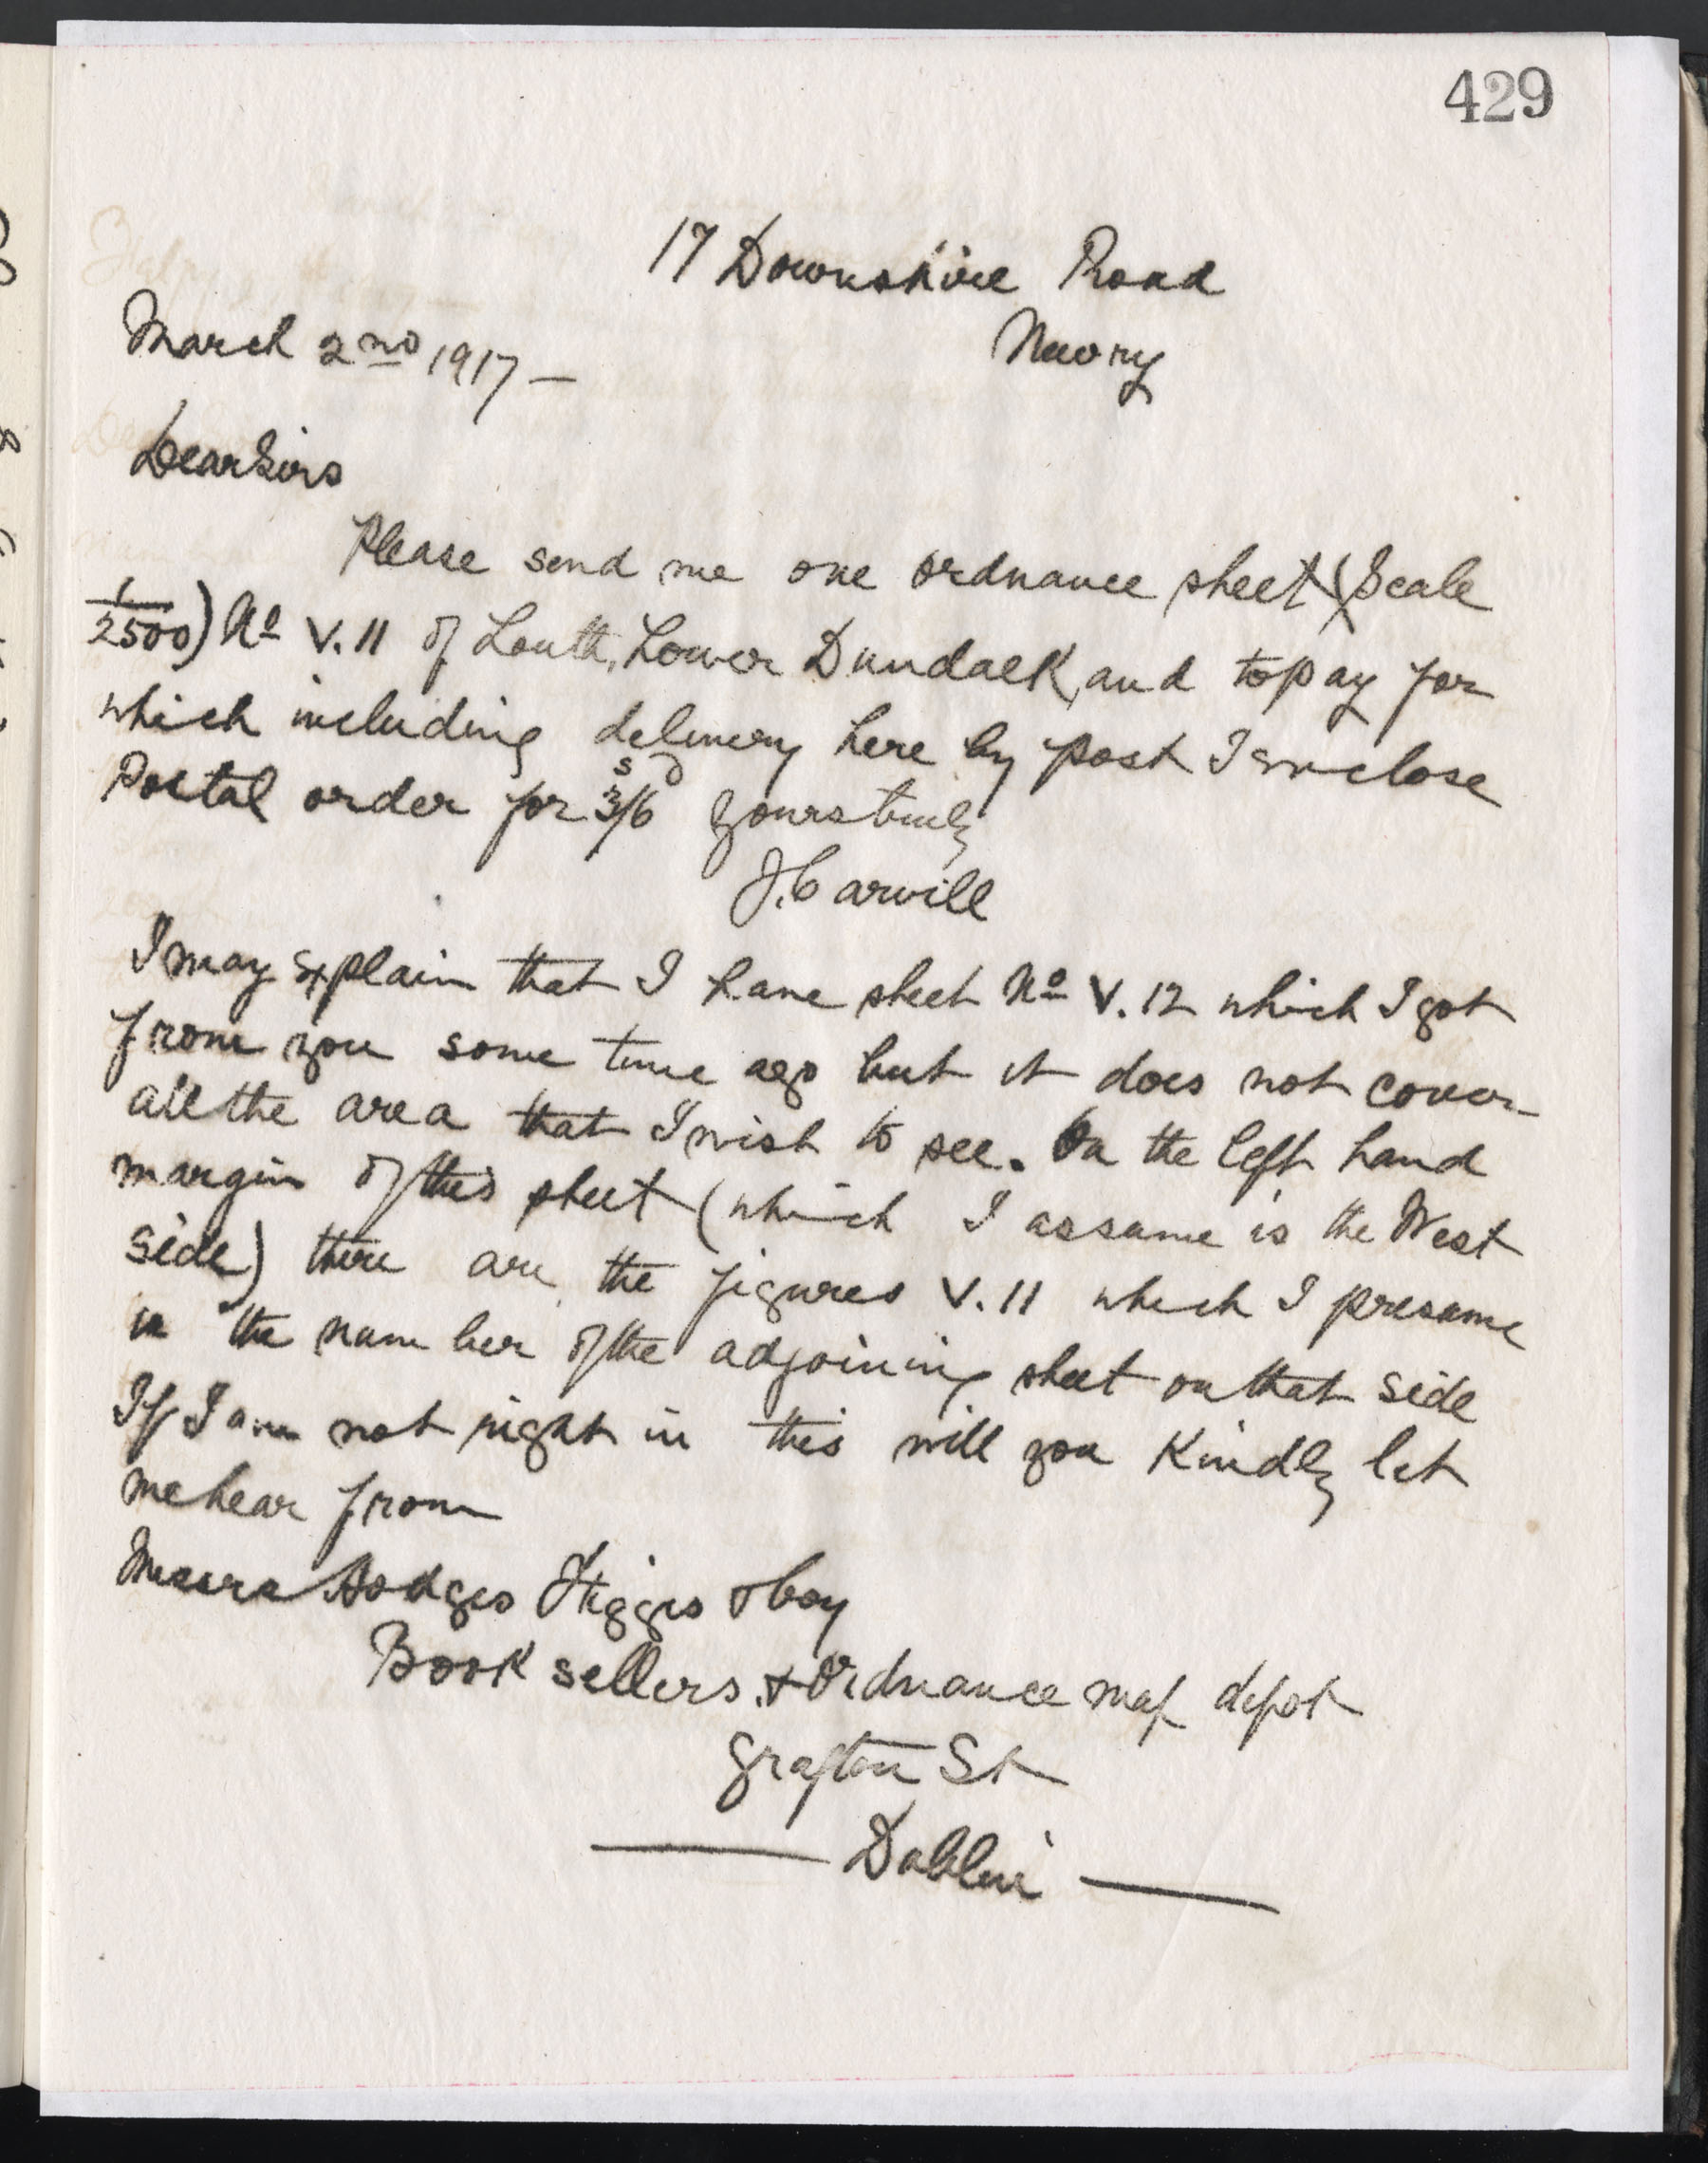 429
17 Downshire Road
Newry
March 2nd 1917 —
Dear Sirs
Please send me one ordnance sheet (Scale
1/2500) No V. 11 of Louth, Lower Dundalk, and to pay for
which including delivery here by post I enclose
Postal order for 3s/6d yours truly
J. Carvill
I may explain that I have sheet No V. 12 which I got
from you some time ago but it does not cover
all the area that I wish to see. On the left hand
margin of this sheet (which I assume is the West
side) there are the figures V. 11 which I presume
is the number of the adjoining sheet on that side
If I am not right in this will you kindly let
me hear from
Messrs Hodges Figgis & Coy
Book sellers & Ordnance map depot
Grafton St
— Dublin —